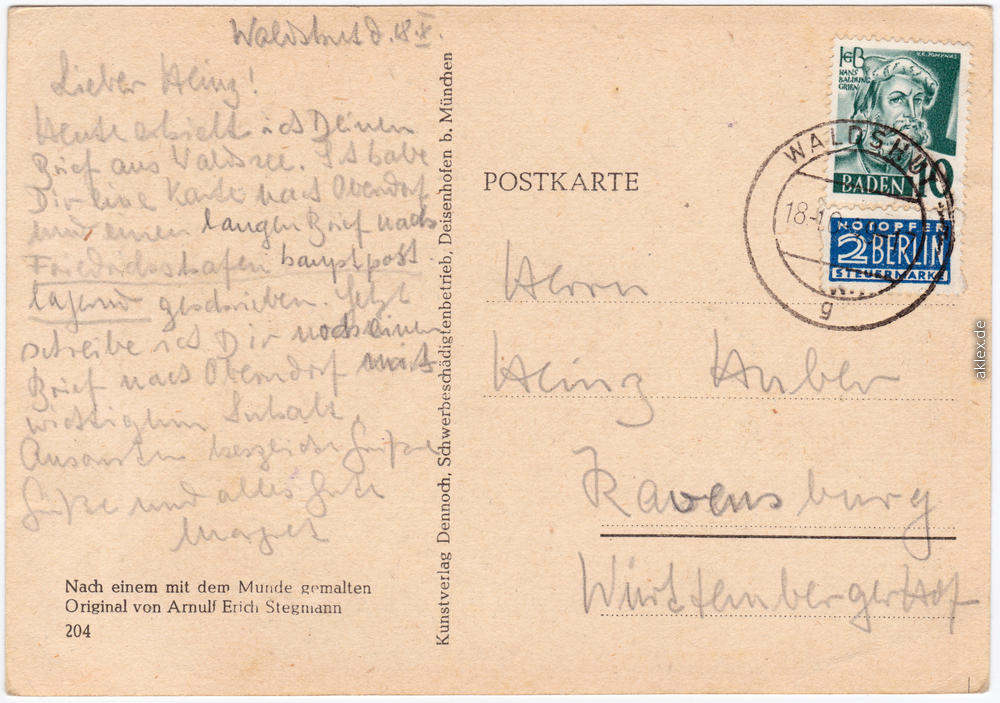 Waldshut d. 18.X.
Lieber Heinz!
Heute erhielt ich Deinen
Brief aus Waldsee. Ich habe
Dir eine Karte nach Oberndorf
und einen langen Brief nach
Friedrichshafen hauptpost
lagernd geschrieben. Jetzt
schreibe ich Dir noch einen
Brief nach Oberndorf mit
wichtigem Inhalt.
Ansonsten herzliche
Grüße und alles Gute
Margret
Nach einem mit dem Munde gemalten
Original von Arnulf Erich Stegmann
204
Kunstverlag Dennoch, Schwerbeschädigtenbetrieb, Deisenhofen b. München
POSTKARTE
HANS
BALDUNG
GRIEN
BADEN 10
NOTOPFER
2 BERLIN
STEUERMARKE
WALDSHUT
g
Herrn
Heinz Huber
Ravensburg
Württemberger Hof
aklex.de